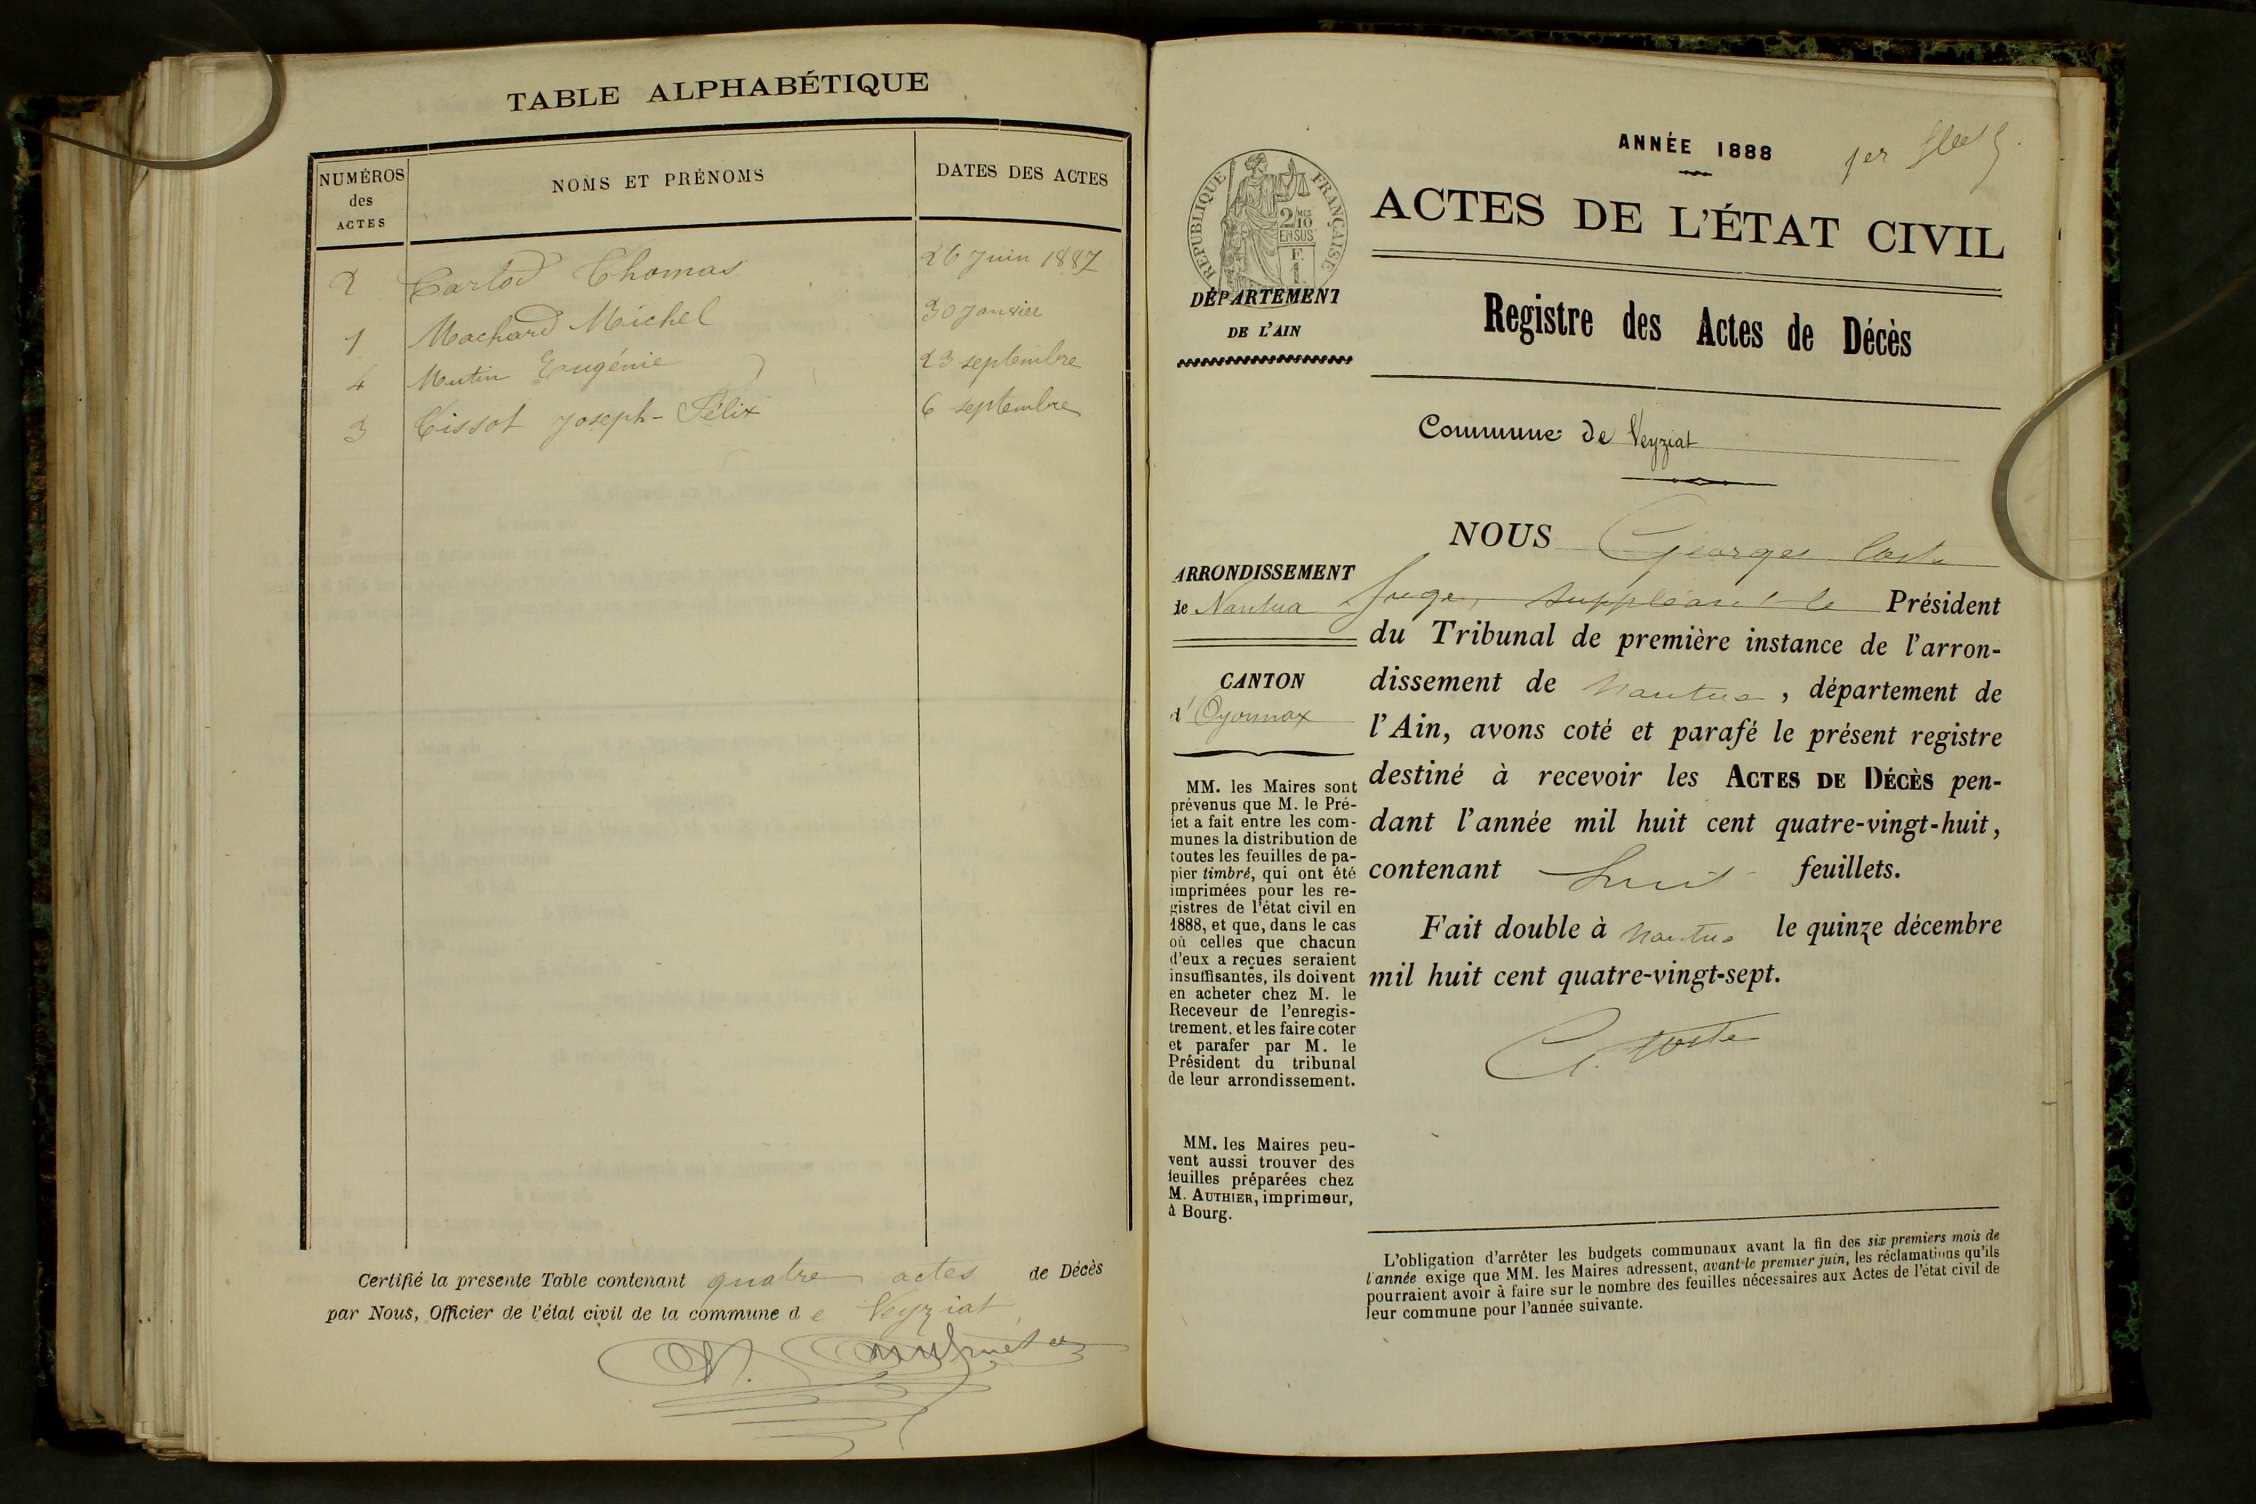 TABLE ALPHABÉTIQUE
NUMÉROS des ACTES
NOMS ET PRÉNOMS
DATES DES ACTES
2 Carlod Thomas 26 Juin 1887
1 Machard Michel 30 Janvier
4 Mutin Eugénie 23 septembre
3 Tissot Joseph-Félix 6 septembre
Certifié la presente Table contenant quatre actes de Décès
par Nous, Officier de l'état civil de la commune de Veyziat
ANNÉE 1888
1er
ACTES DE L'ÉTAT CIVIL
REPUBLIQUE FRANÇAISE
2/10 EN SUS
F. 1
DÉPARTEMENT
DE L'AIN
Registre des Actes de Décès
Commune de Veyziat
ARRONDISSEMENT
de Nantua
CANTON
d'Oyonnax
MM. les Maires sont
prévenus que M. le Pré-
fet a fait entre les com-
munes la distribution de
toutes les feuilles de pa-
pier timbré, qui ont été
imprimées pour les re-
gistres de l'état civil en
1888, et que, dans le cas
où celles que chacun
d'eux a reçues seraient
insuffisantes, ils doivent
en acheter chez M. le
Receveur de l'enregis-
trement, et les faire coter
et parafer par M. le
Président du tribunal
de leur arrondissement.
MM. les Maires peu-
vent aussi trouver des
feuilles préparées chez
M. AUTHIER, imprimeur,
à Bourg.
NOUS Georges Coste
Juge, suppléant le Président
du Tribunal de première instance de l'arron-
dissement de Nantua, département de
l'Ain, avons coté et parafé le présent registre
destiné à recevoir les ACTES DE DÉCÈS pen-
dant l'année mil huit cent quatre-vingt-huit,
contenant huit feuillets.
Fait double à Nantua le quinze décembre
mil huit cent quatre-vingt-sept.
G. Coste
L'obligation d'arrêter les budgets communaux avant la fin des six premiers mois de
l'année exige que MM. les Maires adressent, avant le premier juin, les réclamations qu'ils
pourraient avoir à faire sur le nombre des feuilles nécessaires aux Actes de l'état civil de
leur commune pour l'année suivante.